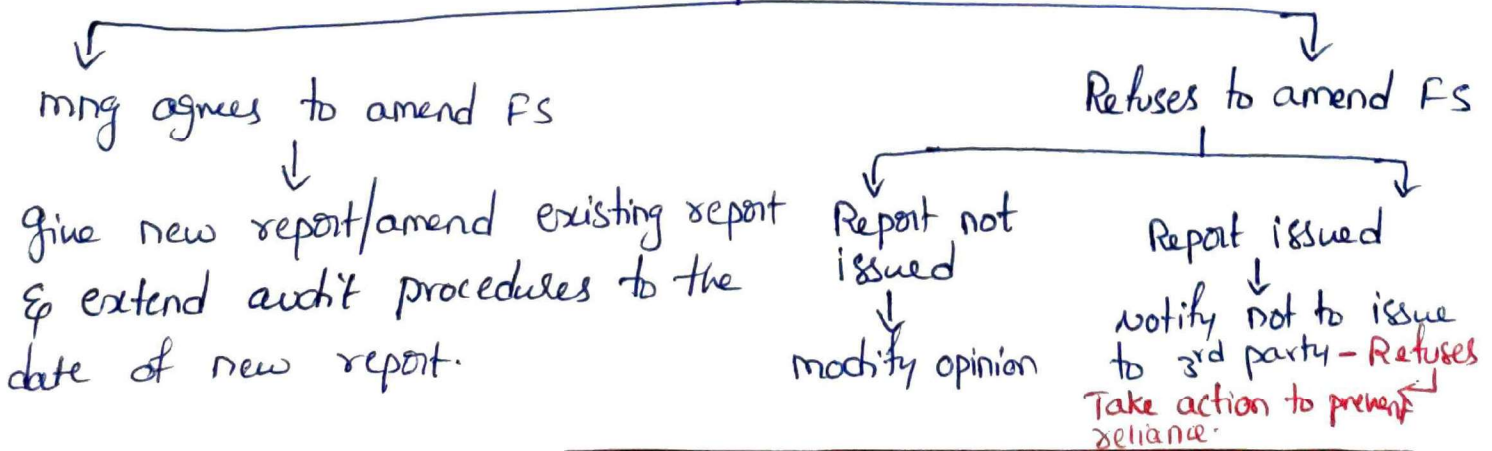 mng agrees to amend FS
Refuses to amend FS
give new report/amend existing report
& extend audit procedures to the
date of new report.
Report not
issued
modify opinion
Report issued
Notify not to issue
to 3rd party - Refuses
Take action to prevent
reliance.